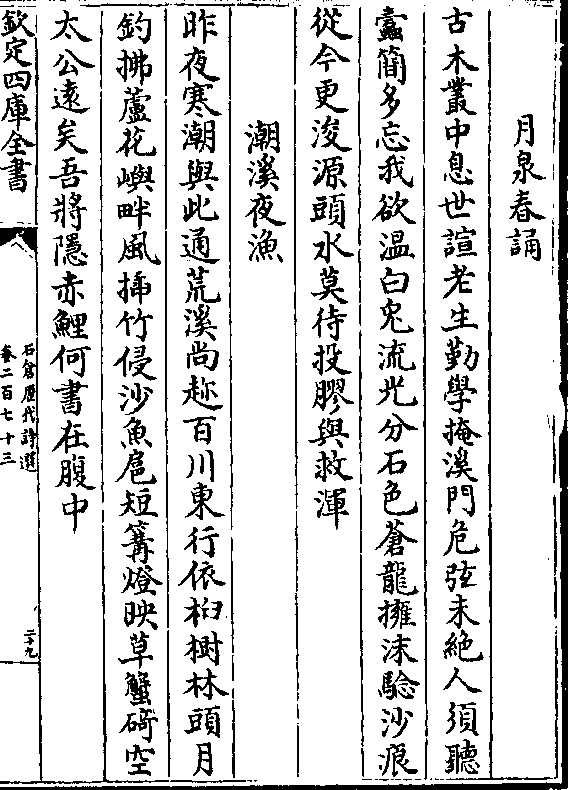 月泉春誦
古木叢中息世諠老生勤學掩溪門危弦未絶人須聽
蠹簡多忘我欲温白兎流光分石色蒼龍擁沫驗沙痕
從今更浚源頭水莫待投膠與救渾
潮溪夜漁
昨夜寒潮與此通荒溪尚趂百川東行依桕樹林頭月
釣拂蘆花嶼畔風揷竹侵沙魚扈短篝燈映草蟹碕空
太公遠矣吾將隱赤鯉何書在腹中
欽定四庫全書
石倉歷代詩選
卷二百七十三
二十九